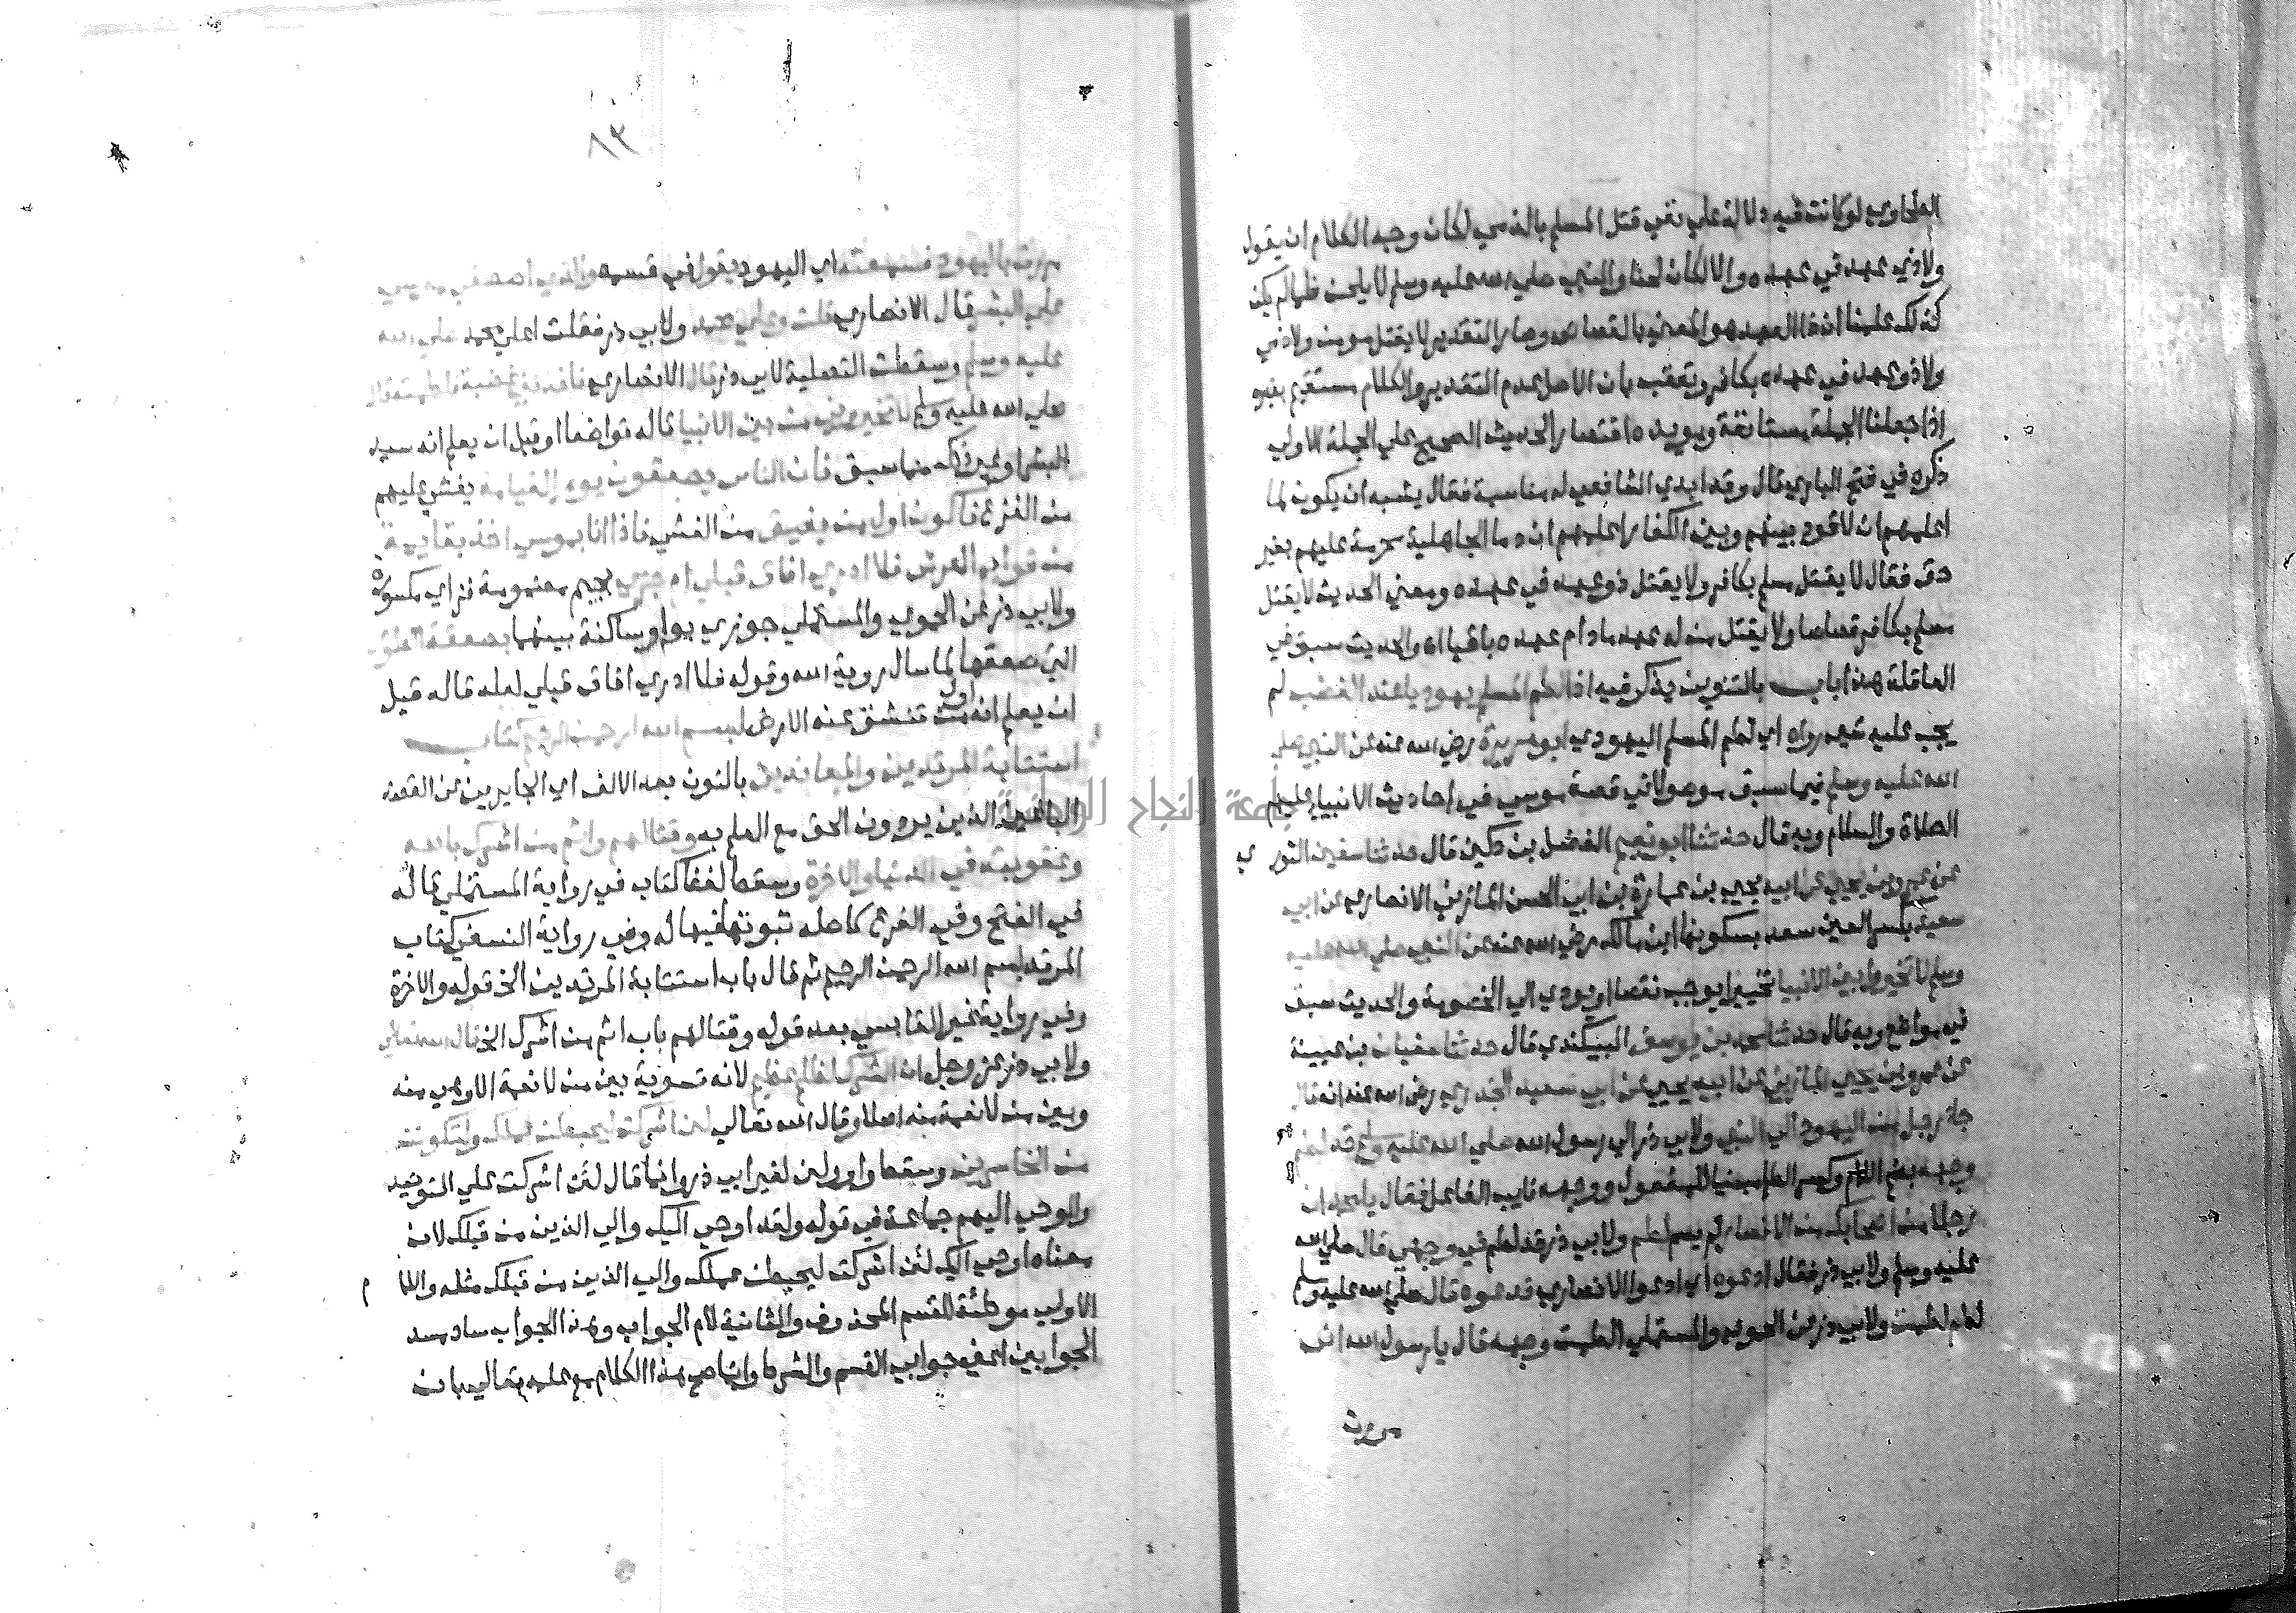 الطحاوي لو كانت فيه دلالة علي نفي قتل المسلم بالذمي لكان وجه الكلام ان يقول
ولا ذي عهد في عهده والا لكان لحنا والنبي صلي الله عليه وسلم لا يلحن فلما لم يكن
كذلك علمنا ان ذا العهد هو المعني بالقصاص وصار التقدير لا يقتل مومن ولا ذمي
ولا ذو عهد في عهده بكافر وتعقب بان الاصل عدم التقدير والكلام مستقيم بغيره
اذا جعلنا الجملة مستانفة ويويده اقتصار الحديث الصحيح علي الجملة الاولي
ذكره في فتح الباري قال وقد ابدي الشافعي له مناسبة فقال يشبه ان يكون لما
اعلمهم ان لا قود بينهم وبين الكفار اعلمهم ان دما الجاهلية محرمة عليهم بغير
حق فقال لا يقتل مسلم بكافر ولا يقتل ذو عهد في عهده ومعني الحديث لا يقتل
مسلم بكافر قصاصا ولا يقتل من له عهد مادام عهده باقيا اه والحديث سبق في
العاقلة هذا باب بالتنوين يذكر فيه اذا لطم المسلم يهوديا عند الغضب لم
يجب عليه شي رواه اي لطم المسلم اليهودي ابو هريرة رضي الله عنه عن النبي صلي
الله عليه وسلم فيما سبق موصولا في قصة موسي في احاديث الانبياء عليهم
الصلاة والسلام وبه قال حدثنا ابو نعيم الفضل بن دكين قال حدثنا سفين الثوري
عن عمرو بن يحيي عن ابيه يحيي بن عمارة بن ابي الحسن المازني الانصاري عن ابي
سعيد بكسر العين سعد بسكونها ابن مالك رضي الله عنه عن النبي صلي الله عليه
وسلم لا تخيروا بين الانبيا تخييرا يوجب نقصا او يودي الي الخصومة والحديث سبق
في مواضع وبه قال حدثنا محمد بن يوسف البيكندي قال حدثنا سفيان بن عيينة
عن عمرو بن يحيي المازني عن ابيه يحيي عن ابي سعيد الخدري رضي الله عنه انه قال
جا رجل من اليهود الي النبي ولابي ذر الي رسول الله صلي الله عليه وسلم قد لطم
وجهه بضم اللام وكسر الطا مبنيا للمفعول ووجهه نايب الفاعل فقال يا محمد ان
رجلا من اصحابك من الانصار لم يسم لطم ولابي ذر قد لطم في وجهي قال صلي الله
عليه وسلم ولابي ذر فقال ادعوه اي ادعوا الانصاري فدعوه قال صلي الله عليه وسلم
لم لطمت ولابي ذر عن الحموي والمستملي الطمت وجهه قال يا رسول الله اني
مررت
٨٣
مررت باليهود فسمعته اي اليهود يقول في قسمه والذي اصطفي موسي
علي البشر قال الانصاري قلت وعلي محمد ولابي ذر فقلت اعلي محمد صلي الله
عليه وسلم وسقطت التصلية لابي ذر قال الانصاري فاخذتني غضبة فلطمته قال
صلي الله عليه وسلم لا تخيروني من بين الانبيا قاله تواضعا او قبل ان يعلم انه سيد
البشر او غير ذلك مما سبق فان الناس يصعقون يوم القيامة يغشي عليهم
من الفزع فاكون اول من يفيق من الغشي فاذا انا بموسي اخذ بقايمة
من قوايم العرش فلا ادري افاق قبلي ام جزي بجيم مضمومة فزاي مكسورة
ولابي ذر عن الحموي والمستملي جوزي بواو ساكنة بينهما بصعقة الطور
التي صعقها لما سال روية الله وقوله فلا ادري افاق قبلي لعله قاله قبل
ان يعلم انه اول من تنشق عنه الارض بسم الله الرحمن الرحيم كتاب
استتابة المرتدين والمعاندين بالنون بعد الالف اي الجايرين عن القصد
الباغين الذين يردون الحق مع العلم به وقتالهم واثم من اشرك بالله
وعقوبته في الدنيا والاخرة وسقط لفظ كتاب في رواية المستملي قاله
في الفتح وفي الفرع كاصله ثبوتها فيها له وفي رواية النسفي كتاب
المرتد بسم الله الرحمن الرحيم ثم قال باب استتابة المرتدين الخ قوله والاخرة
وفي رواية غير القابسي بعد قوله وقتالهم باب اثم من اشرك الخ قال الله تعالي
ولابي ذر عز وجل ان الشرك لظلم عظيم لانه تسوية بين من لا نعمة الا وهي منه
وبين من لا نعمة منه اصلا وقال الله تعالي لين اشركت ليحبطن عملك ولتكونن
من الخاسرين وسقط واو ولين لغير ابي ذر وانما قال لئن اشركت علي التوحيد
والموحي اليهم جماعة في قوله ولقد اوحي اليك والي الذين من قبلك لان
معناه اوحي اليك لئن اشركت ليحبطن عملك والي الذين من قبلك مثله واللام
الاولي موطئة للقسم المحذوف والثانية لام الجواب وهذا الجواب ساد مسد
الجوابين اعني جوابي القسم والشرط وانما صح هذا الكلام مع علمه تعالي بان
جامعة النجاح الوطنية